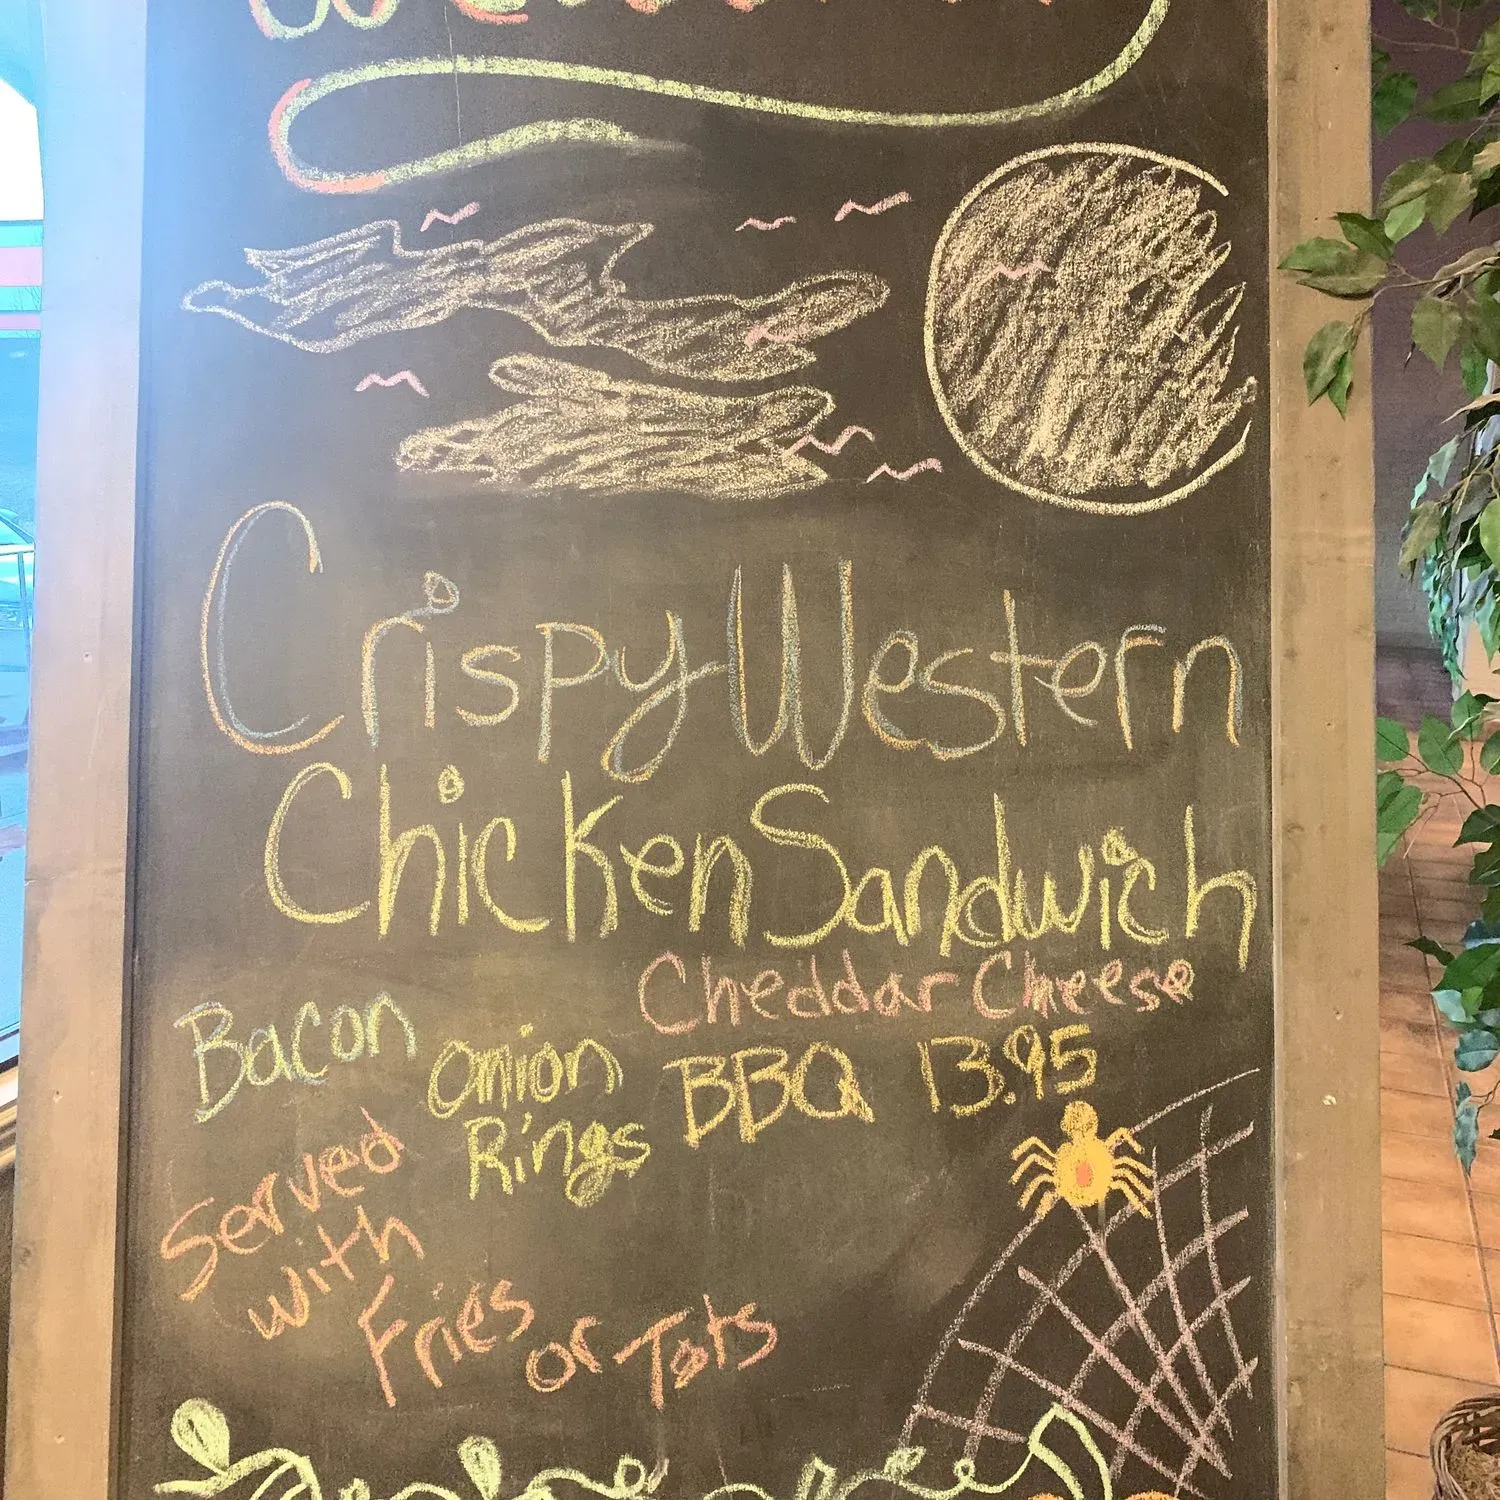 Crispy Western
Chicken Sandwich
Cheddar Cheese
Bacon
Onion
Rings
BBQ 13.95
Served
with
Fries
or Tots